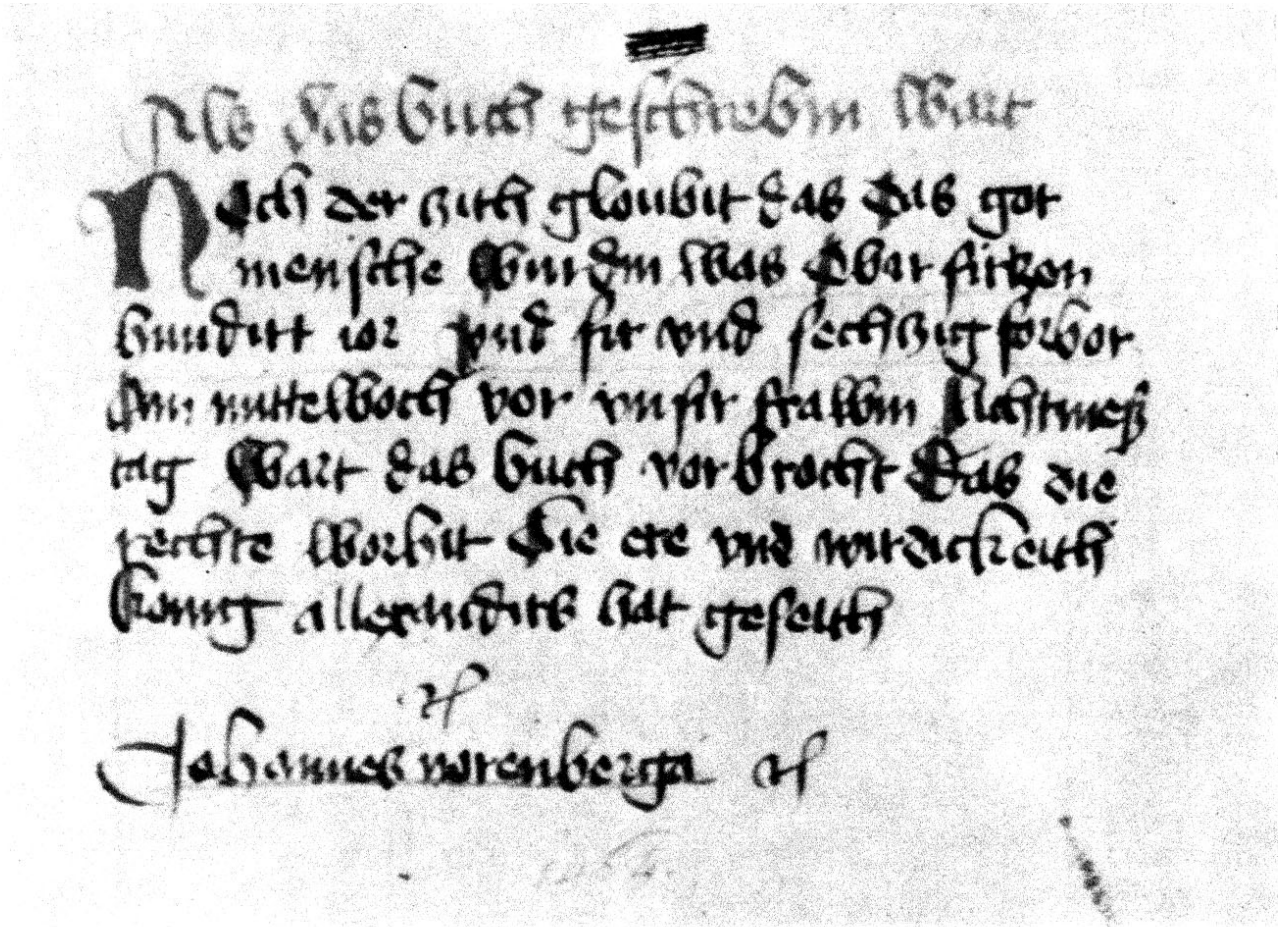 Als das buch geschrebin wart
Noch der zith gloubit das das got
mensche wurdin was Obar firtzen
hundirt ior vnd fir vnd sechzig forbor
Am mittelwoch vor vnsir frawin lichtmeß
tag wart das buch vorbrocht Das die
rechte worhit Die ere vnd wirdickeith
konig allexandirs hat geseith
Johannes vorenberga